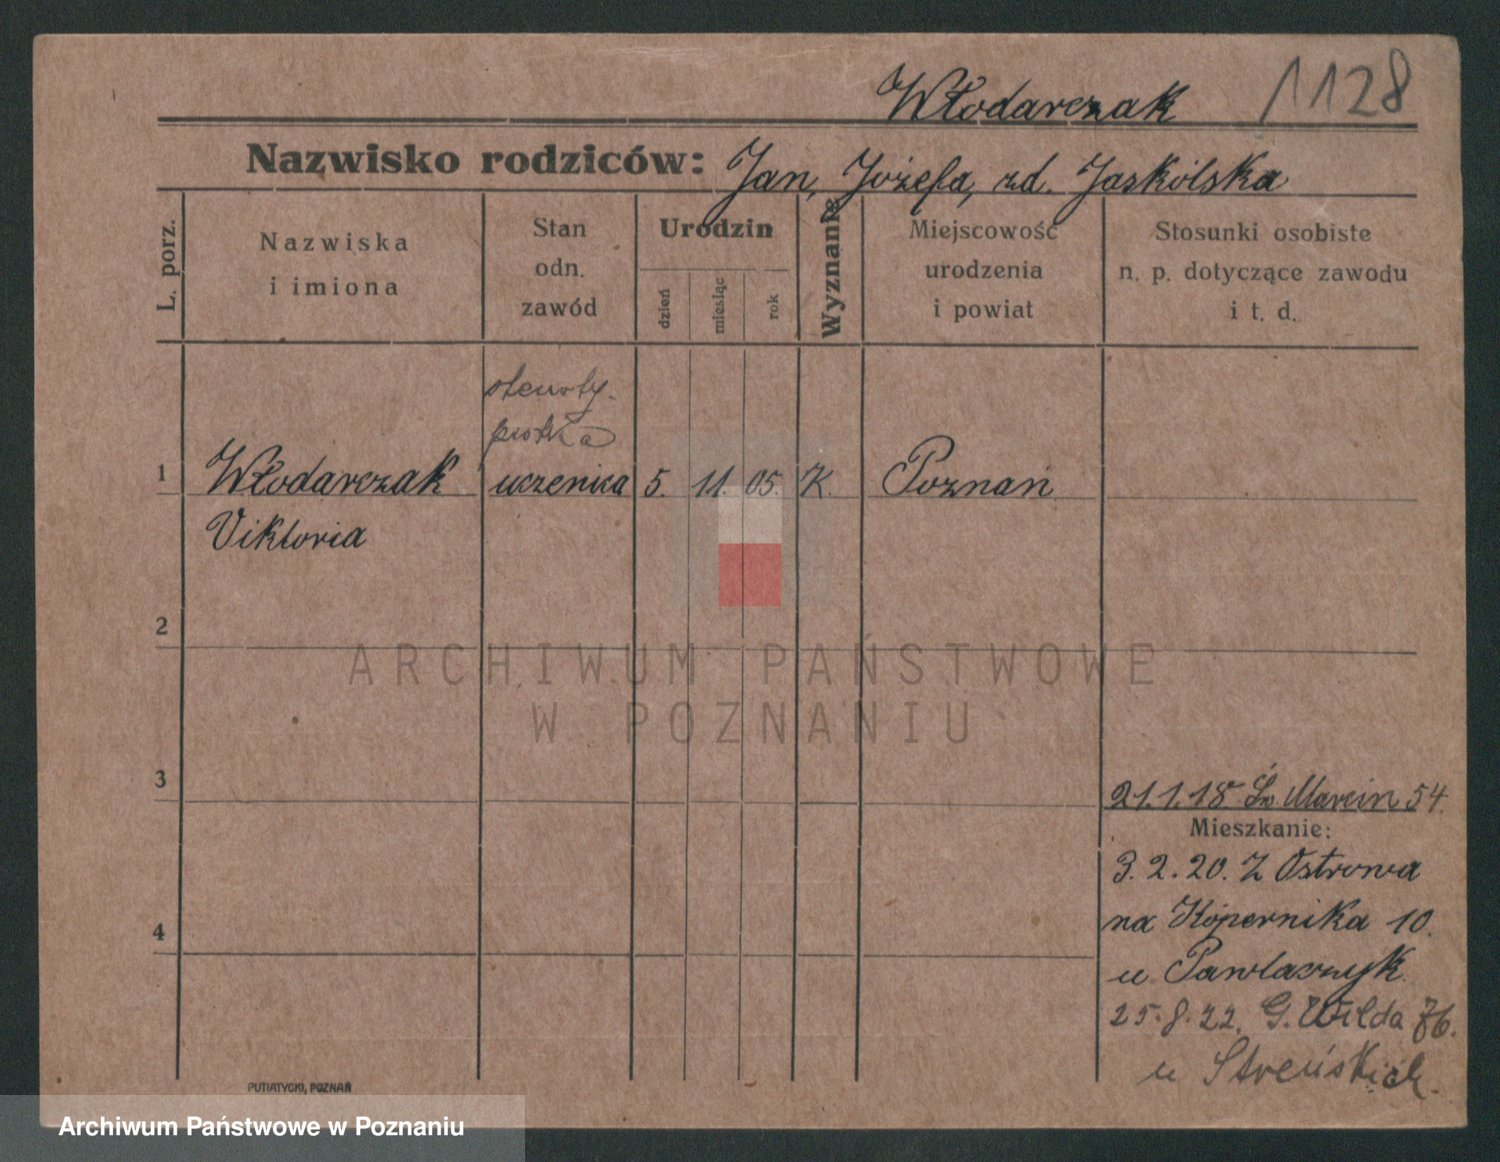 Włodarczak 1128
Nazwisko rodziców: Jan, Józefa, zd. Jaskólska
L. porz.
Nazwiska
i imiona
Stan
odn.
zawód
Urodzin
dzień
miesiąc
rok
Wyznanie
Miejscowość
urodzenia
i powiat
Stosunki osobiste
n. p. dotyczące zawodu
i t. d.
stenoty-
pistka
1 Włodarczak uczenica 5. 11. 05. K. Poznań
Viktoria
2
ARCHIWUM PAŃSTWOWE
W POZNANIU
3
21.1.18 Św Marcin 54.
Mieszkanie:
3.2.20. Z Ostrowa
na Kopernika 10.
4
u Pawlaczyk.
25.8.22. G. Wilda 76.
u
PUTIATYCKI, POZNAŃ
Archiwum Państwowe w Poznaniu